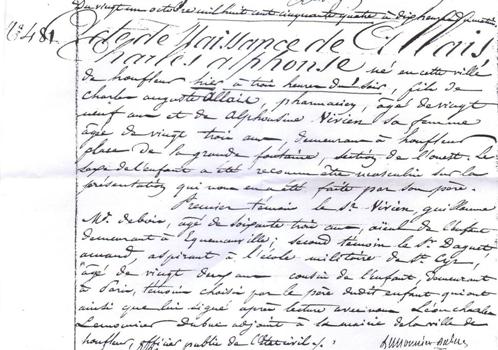 Du vingt un octobre mil huit cent cinquante quatre à dix heures du matin
N° 481. Acte de Naissance de C. Allais
Charles alphonse né en cette ville
de honfleur hier à trois heures du soir, fils de
Charles auguste Allais, pharmacien, âgé de vingt
neuf ans et de alphonsine Vivien sa femme
âgée de vingt trois ans demeurant à honfleur
place de la grande fontaine, section de l'ouest. Le
sexe de l'enfant a été reconnu être masculin sur la
présentation qui nous en a été faite par son père.
Premier témoin le Sr. Vivien, guillaume
âgé de soixante trois ans, aieul de l'enfant
demeurant à Equemauville; second témoin le Sr. Daguet
armand, aspirant à l'école militaire de St. Cyr,
âgé de vingt deux ans cousin de l'enfant, demeurant
à Paris, témoins choisis par le père dudit enfant, qui ont
ainsi que lui signé après lecture avec nous Léon charles
Lemonnier dubuc adjoint à la mairie de la ville de
honfleur, officier public de l'Etat civil.
Lemonnier dubuc